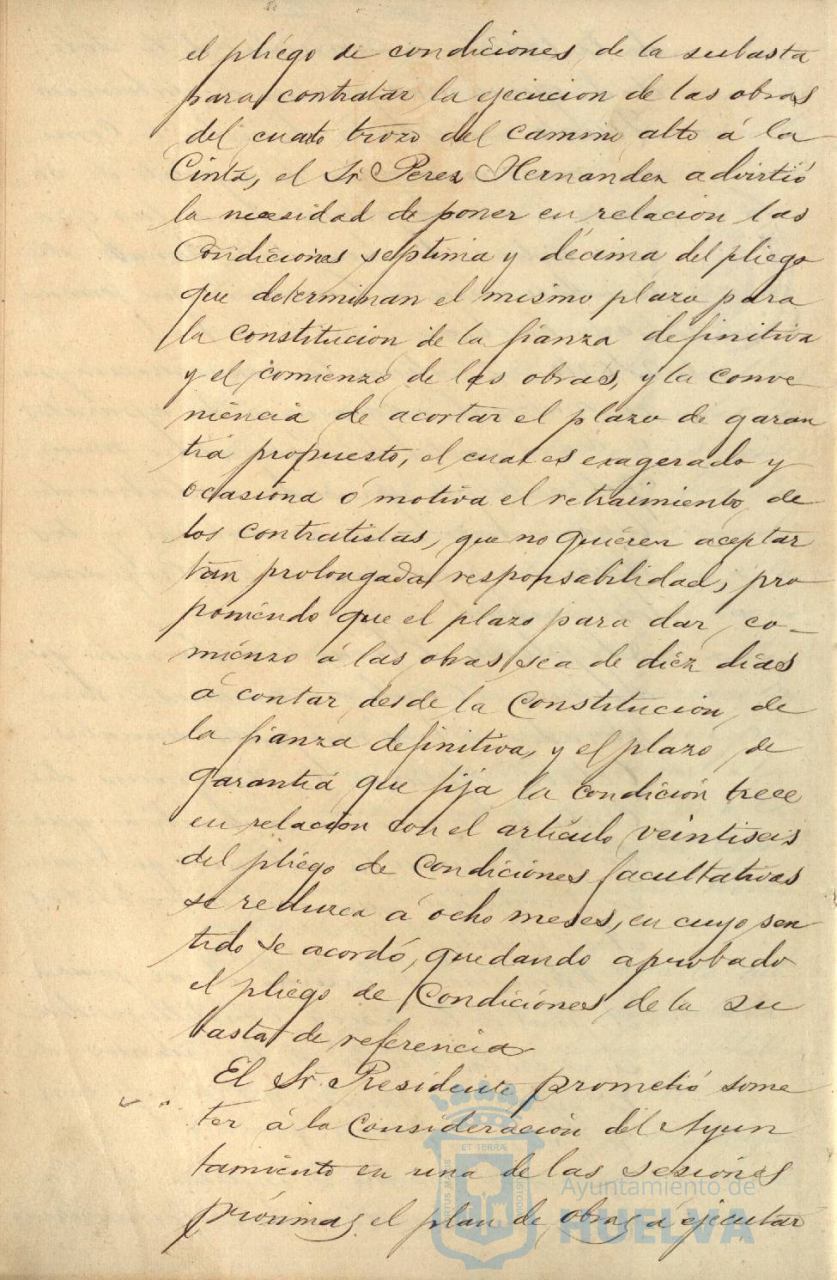 el pliégo de condiciones, de la subasta
para contratar la ejecucion de las obras
del cuarto trozo del camino alto á la
Cinta, el Sr. Perez Hernandez advirtió
la necesidad de poner en relacion las
Condiciones septima y décima del pliego
que determinan el mismo plazo para
la constitucion de la fianza definitiva
y el comienzo de las obras, y la conve
niencia de acortar el plazo de garan
tia propuesto, el cual es exagerado y
ocasiona ó motiva el retraimiento, de
los contratistas, que no quieren aceptar
tan prolongada responsabilidad, pro
poniendo que el plazo para dar co-
mienzo á las obras sea de diez dias
á contar desde la Constitución, de
la fianza definitiva, y el plazo de
garantia que fija la condición trece
en relacion con el artículo veintiseis
del pliégo de Condiciones facultativas
se reduzca á ocho meses, en cuyo sen
tido se acordó, quedando aprobado
el pliégo de Condiciones de la su
basta de referencia
El Sr. Presidente prometió some
ter á la consideración del Ayun
tamiento en una de las sesiones
próximas el plan de obras á ejecutar
ET TERRA
Ayuntamiento de
HUELVA